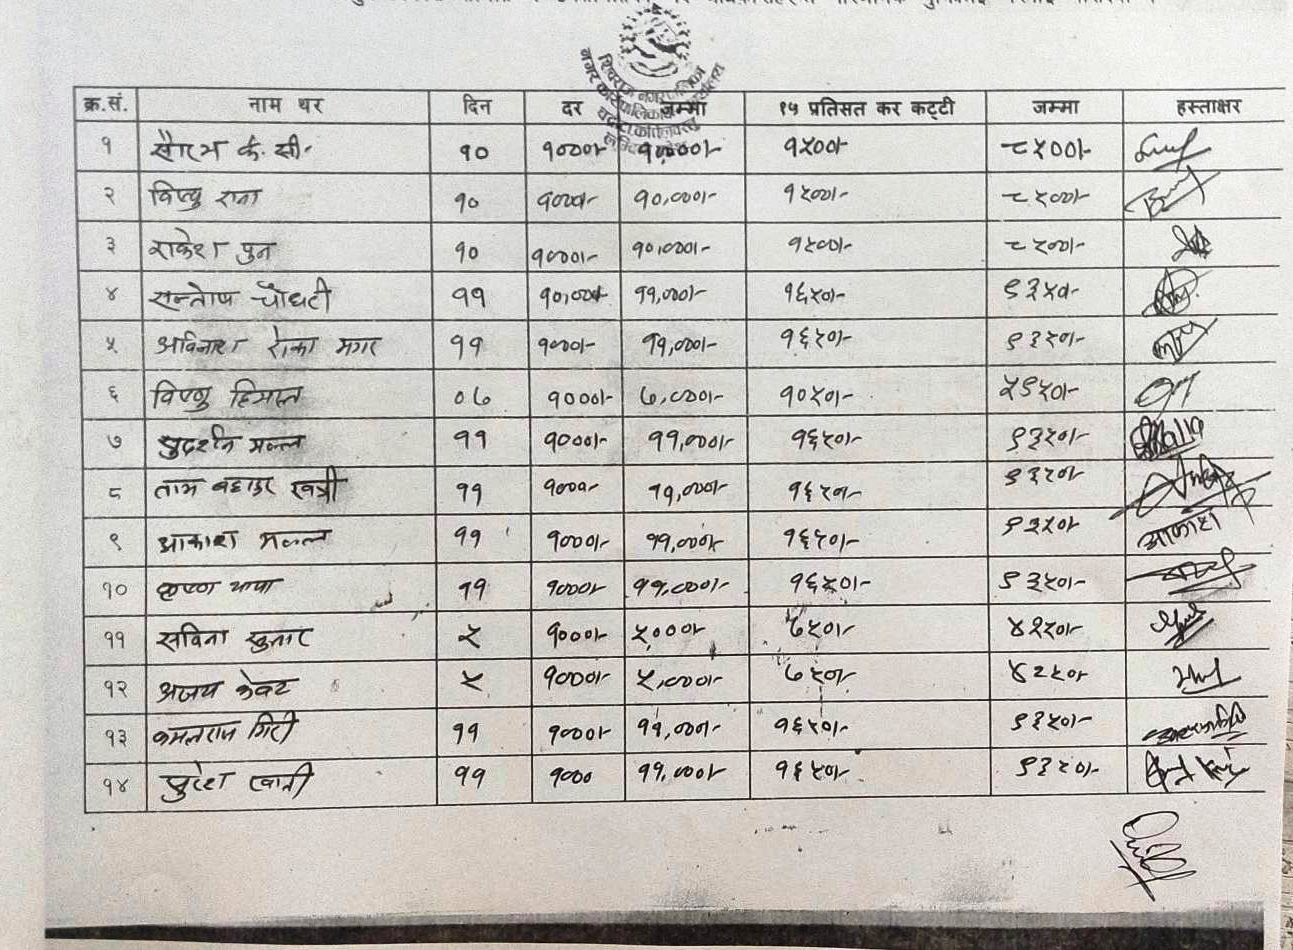 क्र.सं. नाम थर दिन दर जम्मा १५ प्रतिसत कर कट्टी जम्मा हस्ताक्षर
१ सौरभ के.सी. १० १०००/- १०,०००/- १५००/- ८५००/-
२ विष्णु राना १० १०००/- १०,०००/- १५००/- ८५००/-
३ राकेश पुन १० १०००/- १०,०००/- १५००/- ८५००/-
४ सन्तोष चौधरी ११ ११,०००/- १६५०/- ९३५०/-
५ अविनाश रोका मगर ११ १०००/- ११,०००/- १६५०/- ९३५०/-
६ विष्णु हिमाल ०७ १०००/- ७,०००/- १०५०/- ५९५०/-
७ सुदर्शन मल्ल ११ १०००/- ११,०००/- १६५०/- ९३५०/-
८ बहादुर खत्री ११ १०००/- ११,०००/- १६५०/- ९३५०/-
९ आकाश मल्ल ११ १०००/- ११,०००/- १६५०/- ९३५०/- आकाश
१० कृष्ण थापा ११ १०००/- ११,०००/- १६५०/- ९३५०/-
११ सविना सुनार ५ १०००/- ५०००/- ७५०/- ४२५०/-
१२ अजय केवट ५ १०००/- ५,०००/- ७५०/- ४२५०/-
१३ कमलराज गिरी ११ १०००/- ११,०००/- १६५०/- ९३५०/-
१४ सुरेश खत्री ११ १००० ११,०००/- १६५०/- ९३५०/-